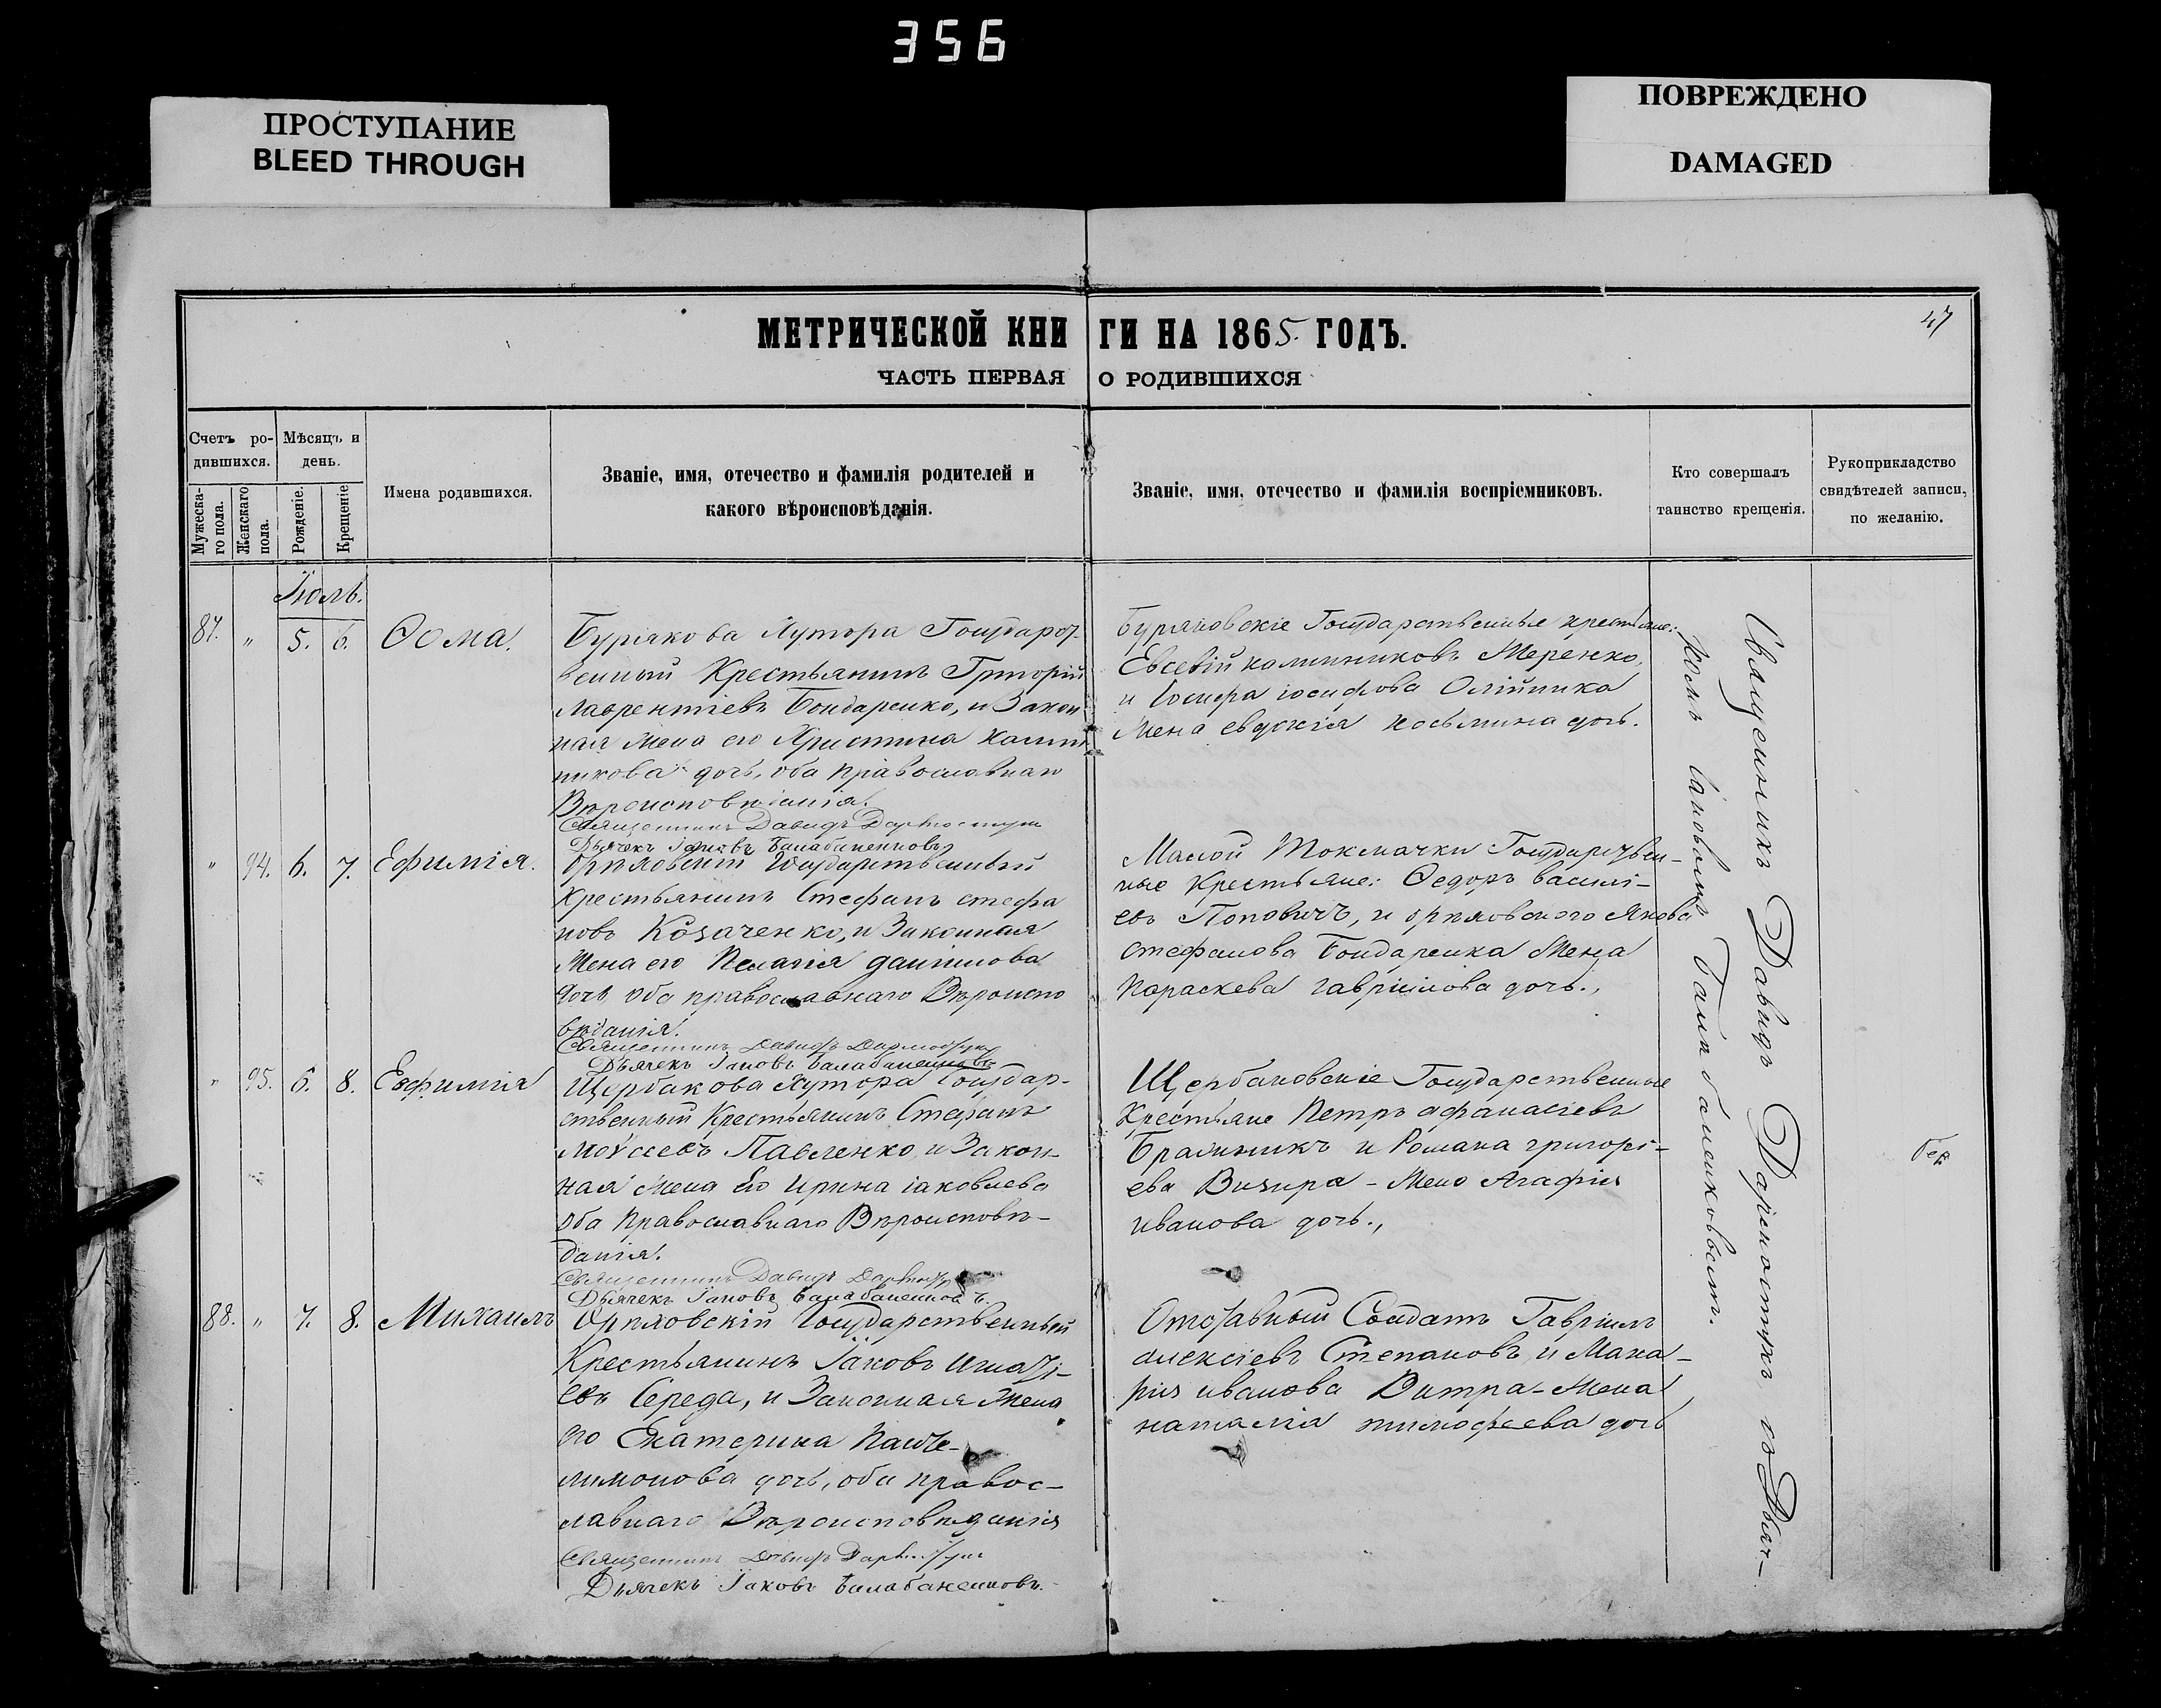 356
ПРОСТУПАНИЕ
BLEED THROUGH
ПОВРЕЖДЕНО
DAMAGED
47
МЕТРИЧЕСКОЙ КНИГИ НА 1865. ГОДЪ.
ЧАСТЬ ПЕРВАЯ О РОДИВШИХСЯ
Счетъ ро-
дившихся.
Мужеска-
го пола.
Женскаго
пола.
Мѣсяцъ и
день.
Рожденіе.
Крещеніе
Имена родившихся.
Званіе, имя, отечество и фамилія родителей и
какого вѣроисповѣданія.
Званіе, имя, отечество и фамилія воспріемниковъ.
Кто совершалъ
таинство крещенія.
Рукоприкладство
свидѣтелей записи,
по желанію.
Іюль.
87. „ 5. 6. Ѳома.
Бурякова Хутора Государст
венный Крестьянинъ Григорій
Лаврентіевъ Бондаренко, и Закон
ная жена его Христина калин
никова дочь, оба православнаго
Вѣроисповѣданія.
Священникъ Давидъ
Дьячекъ Іаковъ Балабаненковъ
Буряковскіе Государственные крестьяне:
Евсевій калинниковъ Меренко,
и Іосифа іосифова Олійника
жена евдокія косьмина дочь.
„ 94. 6. 7. Ефимія.
Орѣховскій Государственный
Крестьянинъ Стефанъ стефа
новъ Козаченко, и Законная
жена его Пелагія даниилова
дочь оба православнаго Вѣроиспо
вѣданія.
Священникъ Давидъ
Дьячекъ Іаковъ Балабаненковъ
Малой Токмачки Государствен-
ные Крестьяне: Ѳедоръ василі-
евъ Поповичъ, и орѣховского Якова
стефанова Бондаренка жена
Параскева гавріилова дочь.,
„ 95. 6. 8. Евфимія
Щербакова Хутора Государ-
ственный Крестьянинъ Стефанъ
Моѵсеевъ Павленко, и Закон-
ная жена Его Ирина іаковлева
оба Православнаго Вѣроисповѣ-
данія.
Священникъ Давидъ
Дьячекъ Іаковъ Балабаненковъ.
Щербаковскіе Государственные
Крестьяне Петръ афанасіевъ
и Романа григорі-
ева Визира - жена Агафія
иванова дочь.,
88. „ 7. 8. Михаилъ
Орѣховскій Государственный
Крестьянинъ Іаковъ игнаті-
евъ Середа, и Законная жена
его Екатерина Панте-
лимонова дочь, оба правос-
лавнаго Вѣроисповѣданія
Священникъ Давидъ
Дьячекъ Іаковъ Балабаненковъ.
Отставный Солдатъ Гавріилъ
алексіевъ Степановъ, и Мака-
рія иванова Витра - жена
наталія тимофеева дочь
Священникъ Давидъ съ Дьяч-
комъ Іаковомъ Балабаненковымъ.